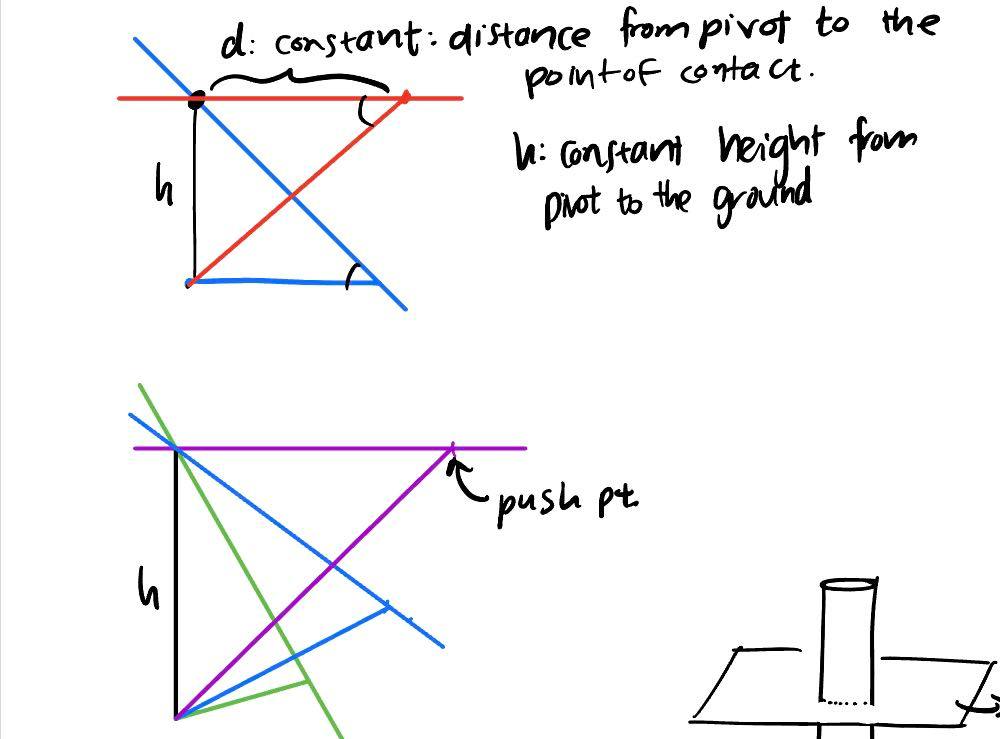 d: constant: distance from pivot to the
point of contact.
h
h: constant height from
pivot to the ground
push pt.
h